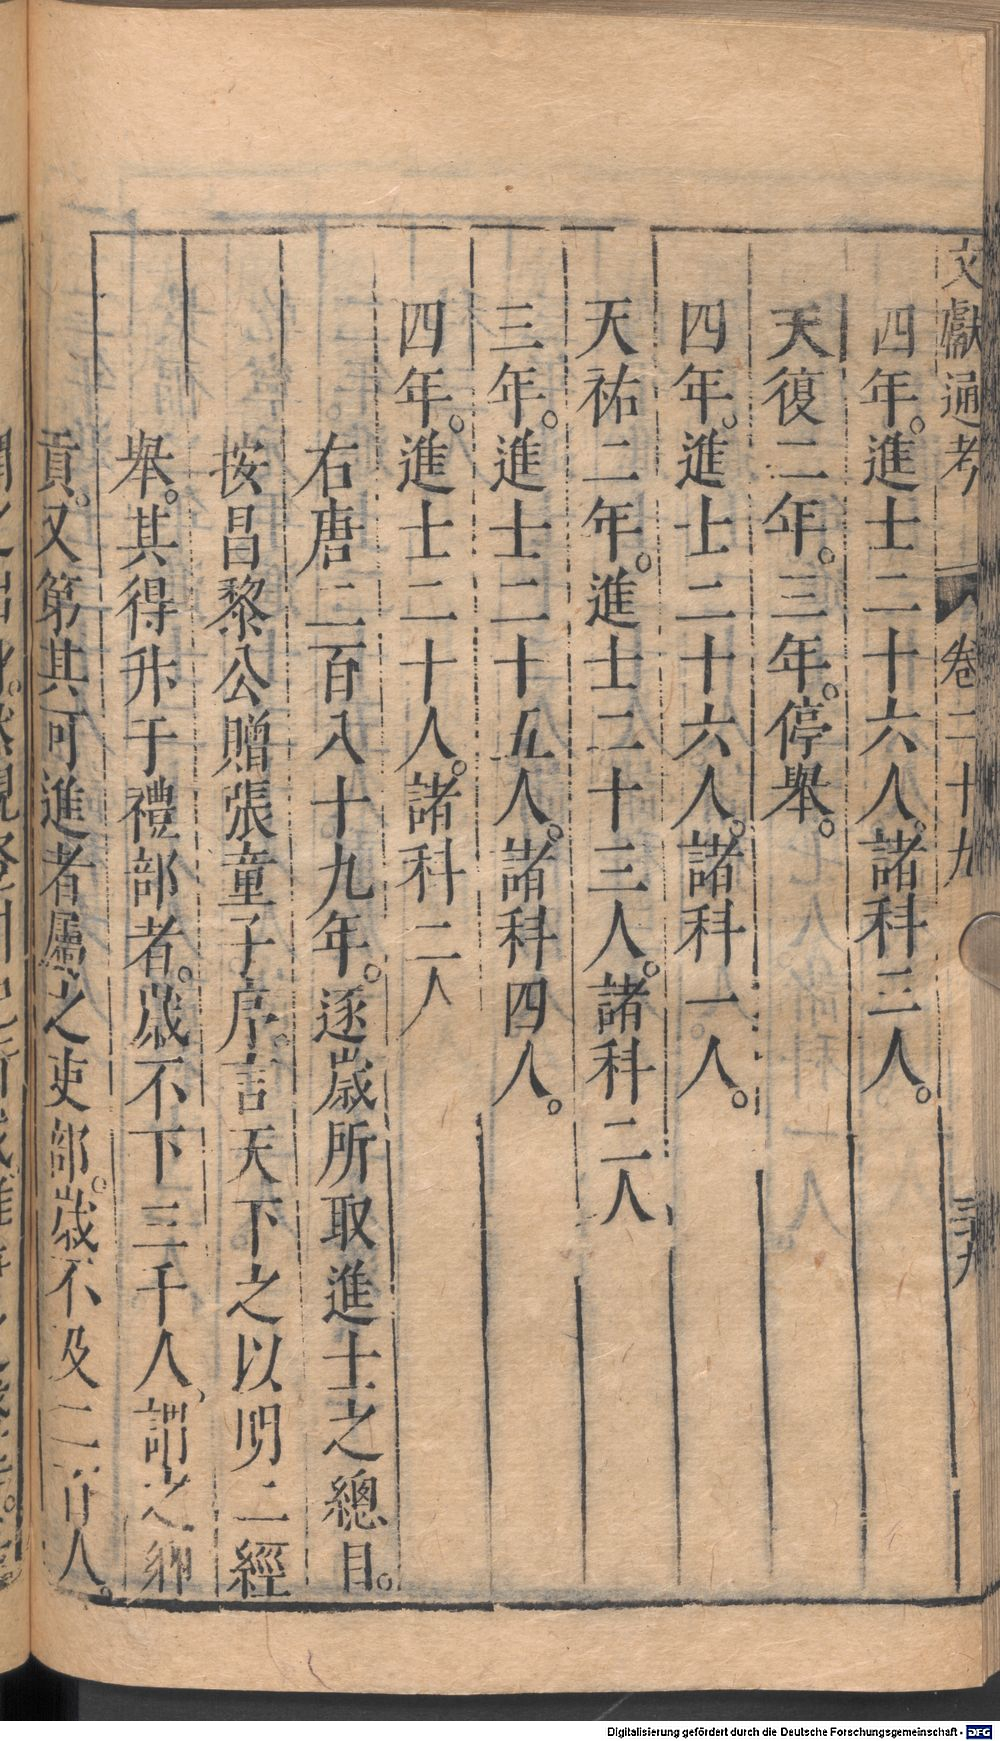 文獻通考 卷二十九 三九
四年。進士二十六人。諸科三人。
天復二年。三年。停舉。
四年。進士二十六人。諸科一人。
天祐二年。進士二十三人。諸科二人
三年。進士二十五人。諸科四人。
四年。進士二十人。諸科二人
右唐二百八十九年。逐歲所取進士之總目。
按昌黎公贈張童子序。言天下之以明二經
舉。其得升于禮部者。歲不下三千人、謂之鄉
貢。又第其可進者屬之吏部。歲不及二百人。
Digitalisierung gefördert durch die Deutsche Forschungsgemeinschaft - DFG